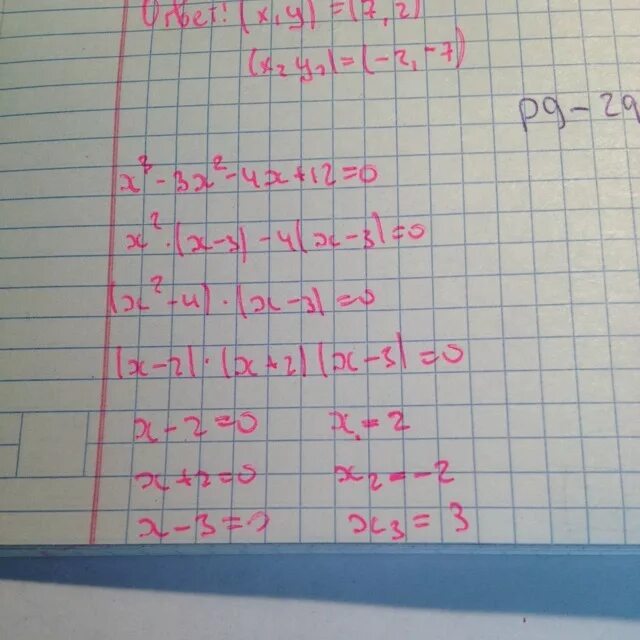 Ответ: (x, y) = (7, 2)
(x₂ y₂) = (-2, -7)
pg - 2q
x³ - 3x² - 4x + 12 = 0
x² · (x - 3) - 4(x - 3) = 0
(x² - 4) · (x - 3) = 0
(x - 2) · (x + 2) (x - 3) = 0
x - 2 = 0 x₁ = 2
x + 2 = 0 x₂ = -2
x - 3 = 0 x₃ = 3